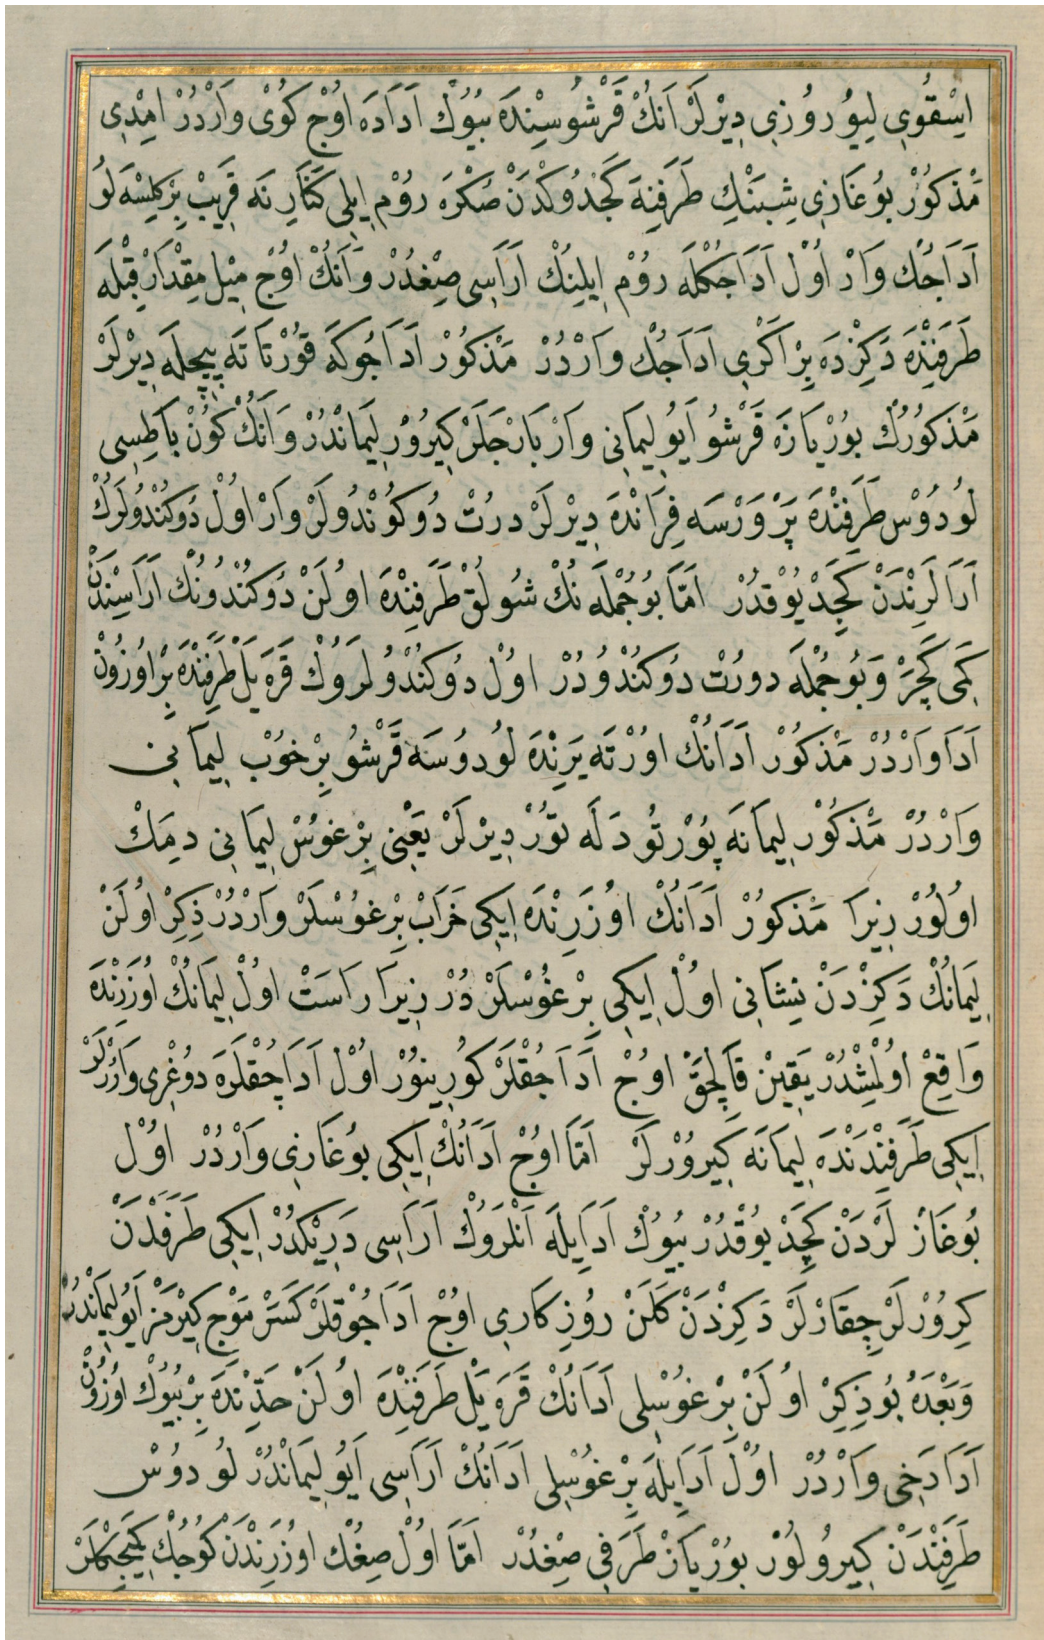 اِسْقُوِي لِيُو رُوزِي دِيْرلَرْ اَنُكْ قَرْشُوسِنْدَه بُيُوكْ اَدَادَه اُوْچ كُوْى وَارْدُرْ اِمْدِى
مَذكُورْ بُوغَازِى شِبَنِكْ طَرَفِنِه كَچْدُوكْدَنْ صُكْرَه رُوْم اِيلِى كَنَارِنَه قَرِيبْ بِرْ كِلِيسَه لُو
اَدَاجُكْ وَارْ اُولْ اَدَاجُكْلَه رُوْم اِيلِنُكْ اَرَاسِى صِغدُرْ وَانَكْ اُوْچ مِيْل مِقْدَارْ قِبْلَه
طَرَفِنْدَه دَكِزْدَه بِرْ اَكْرِى اَدَاجُكْ وَارْدُرْ مَذكُورْ اَدَاجُوكَه قُوْرْتَاتَه پِيچلَه دِيْرلَرْ
مَذكُورُكْ بُورْيَازَه قَرْشُو اَيُو لِيمَانِى وَارْ بَارْجَلَرْ كِيرُورْ لِيمَانْدُرْ وَانَكْ كُونْ بَاطِسِى
لُودُوسْ طَرَفِنْدَه پَرْوَرْسَه فِرَانْدَه دِيْرلَرْ دَرْتْ دُوكُونْدُولَرْ وَارْ اُولْ دُوكُنْدُولَرُكْ
اَرَالَرِنْدَنْ كَچِدْ يُوْقدُرْ اَمَّا بُو جُمْلَه نُكْ شُولُقْ طَرَفِنْدَه اُولَنْ دُوكُنْدُونُكْ اَرَاسِنْدَنْ
كَمِى كَچَرْ وَبُو جُمْلَه دُورْتْ دُوكُنْدُودُرْ اُولْ دُوكُنْدُولَرُوكْ قَرَه يَلْ طَرَفِنْدَه بِرْ اُوزُونْ
اَدَا وَارْدُرْ مَذكُورْ اَدَانُكْ اُورْتَه يَرِنْدَه لُودُوسَه قَرْشُو بِرْ خُوبْ لِيمَانِى
وَارْدُرْ مَذكُورْ لِيمَانَه پُوْرْتُو دَلَه تُوْرْ دِيْرلَرْ يَعْنِى بِرْغُوسْ لِيمَانِى دِمَكْ
اُولُورْ زِيرَا مَذكُورْ اَدَانُكْ اُوزَرِنْدَه اِيكِى خَرَابْ بِرْغُوسْلَرْ وَارْدُرْ ذِكِرْ اُولَنْ
لِيمَانُكْ دَكِزْدَنْ نِشَانِى اُولْ اِيكِى بِرْغُوسْلَرْ دُرْ زِيرَا رَاسَتْ اُولْ لِيمَانُكْ اُوزَرِنْدَه
وَاقِعْ اُولْمِشْدُرْ يَقِينْ قَالِجَقْ اُوچ اَدَاجُقْلَرْ كُورِينُورْ اُولْ اَدَاجِقْلَرَه دُوغْرِى وَارُرْلَرْ
اِيكِى طَرَفِنْدَنْدَه لِيمَانَه كِيرُورْلَرْ اَمَّا اُوچ اَدَانُكْ اِيكِى بُوغَازِى وَارْدُرْ اُولْ
بُوغَازْ لَرْدَنْ كَچِدْ يُوْقدُرْ بُيُوكْ اَدَايِلَه اَنْلَرُوكْ اَرَاسِى دَرِيْكدُرْ اِيكِى طَرَفَدَنْ
كِرُورْلَرْ چِقَارْلَرْ دَكِزْدَنْ كَلَنْ رُوزِكَارِى اُوچ اَدَاجُوقلَرْ كَسَرْ مَوْج كِيْرمَزْ اَيُو لِيمَانْدُرْ
وَبَعْدَهُ بُو ذِكِرْ اُولَنْ بِرْغُوسْلِى اَدَانُكْ قَرَه يَلْ طَرَفِنْدَه اُولَنْ حَدِّنْدَه بِرْ بُيُوكْ اُوزُونْ
اَدَا دَخِى وَارْدُرْ اُولْ اَدَايِلَه بِرْغُوسْلِى اَدَانُكْ اَرَاسِى اَيُو لِيمَانْدُرْ لُودُوسْ
طَرَفِنْدَنْ كِيرُولُورْ بُورْيَازْ طَرَفِى صِغدُرْ اَمَّا اُولْ صِغُكْ اُوزَرِنْدَنْ كُوجُكْ كَمِيجِكْلَرْ